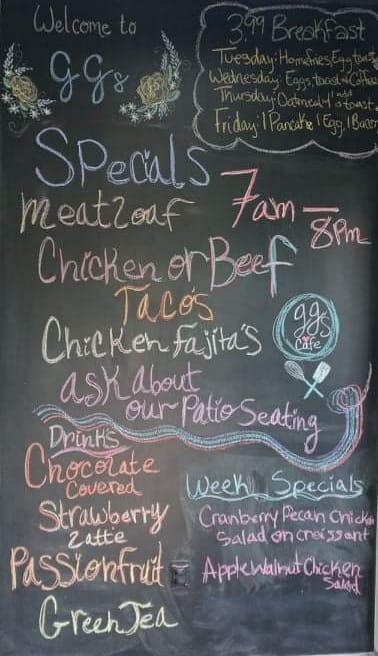 Welcome to
GGs
3.99 Breakfast
Tuesday: Homefries, Egg, toast
Wednesday: Eggs, toast & Coffee
Thursday: Oatmeal & toast
Friday: 1 Pancake 1 Egg, 1 Bacon
Specials
7am - 8pm
Meatloaf
Chicken or Beef
Tacos
Chicken Fajita's
GGs
Cafe
ask about
our Patio Seating
Drinks
Chocolate
Covered
Strawberry
Latte
Passionfruit
Green Tea
Week Specials
Cranberry Pecan Chicken
Salad on croissant
Apple Walnut Chicken
Salad